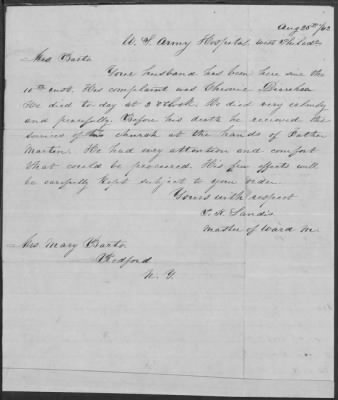 Aug 25th /63
U. S. Army Hospital West Philada
Mrs Barto
Your husband has been here since the
10th inst. His complaint was Chronic Diarrhea
He died to day at 3 o'clock. He died very calmly
and peacefully. Before his death he received the
services of his church at the hands of Father
Martin. He had every attention and comfort
that could be procured. His few effects will
be carefully kept subject to your order
Yours with respect
Landis
Master of Ward M.
Mrs Mary Barto
Bedford
N. Y.